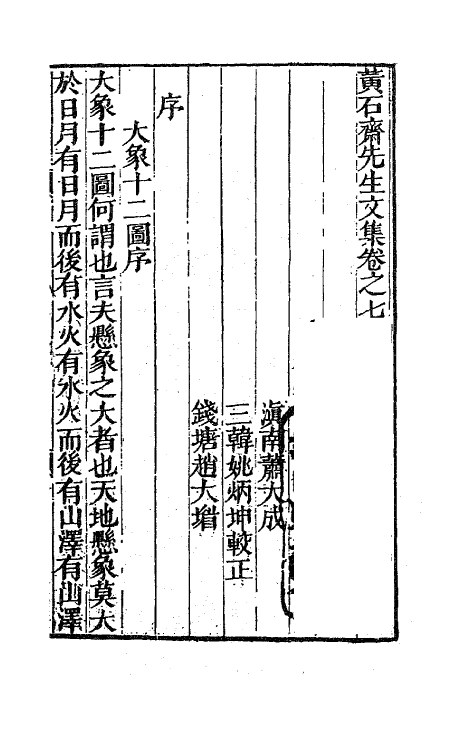 黃石齋先生文集卷之七
滇南蕭大成
三韓姚炳坤較正
錢塘趙大堦
序
大象十二圖序
大象十二圖何謂也言夫懸象之大者也天地懸象莫大
於日月有日月而後有水火有水火而後有山澤有山澤